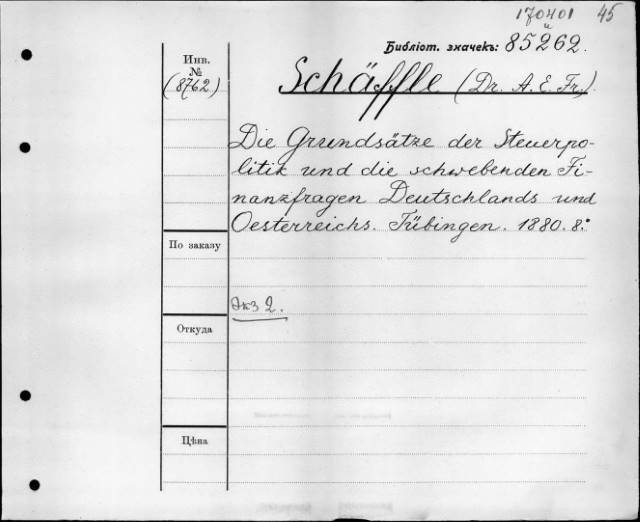 170401 45
и
Библіот. значекъ: 85262.
Инв.
№
(8762)
Schäffle (Dr. A. E. Fr.)
Die Grundsätze der Steuerpo-
litik und die schwebenden Fi-
nanzfragen Deutschlands und
Oesterreichs. Tübingen. 1880. 8.°
По заказу
Экз 2.
Откуда
Цѣна